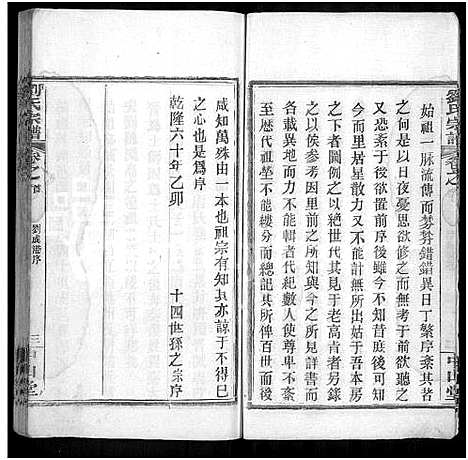 劉氏宗譜
卷之
中山堂
始祖一脈流傳而成棼棼錯錯異日丁繁序紊其咎
又恐紊于後者也是以日夜憂思欲修之而前欲聽之
猶然無成欲已不能姑取後置前序後雖今不知前亦
不能且一里居星散力又不能計無所出姑于吾本房
之下者圖例之以絕世代其于老高肯另錄
之以俟參考因而自之所知今之所見詳書而
各載異地而遷不能輯者代紀數人使尊卑不紊
至歷代祖塋不能縷分而總記其所俾百世而
咸知萬殊由一本也祖宗有知真亦諒予不得已
之心也是爲序
乾隆六十年乙卯
十四世孫之宗序
劉氏宗譜
卷之首
劉成港序
三
中山堂